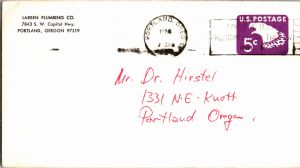 LARSEN PLUMBING CO.
7843 S. W. Capitol Hwy.
PORTLAND, OREGON 97219
PORTLAND, OREGON
PM
U.S. POSTAGE
5¢
Mr. Dr. Hirstel
1331 N-E-Knott
Portland Oregon